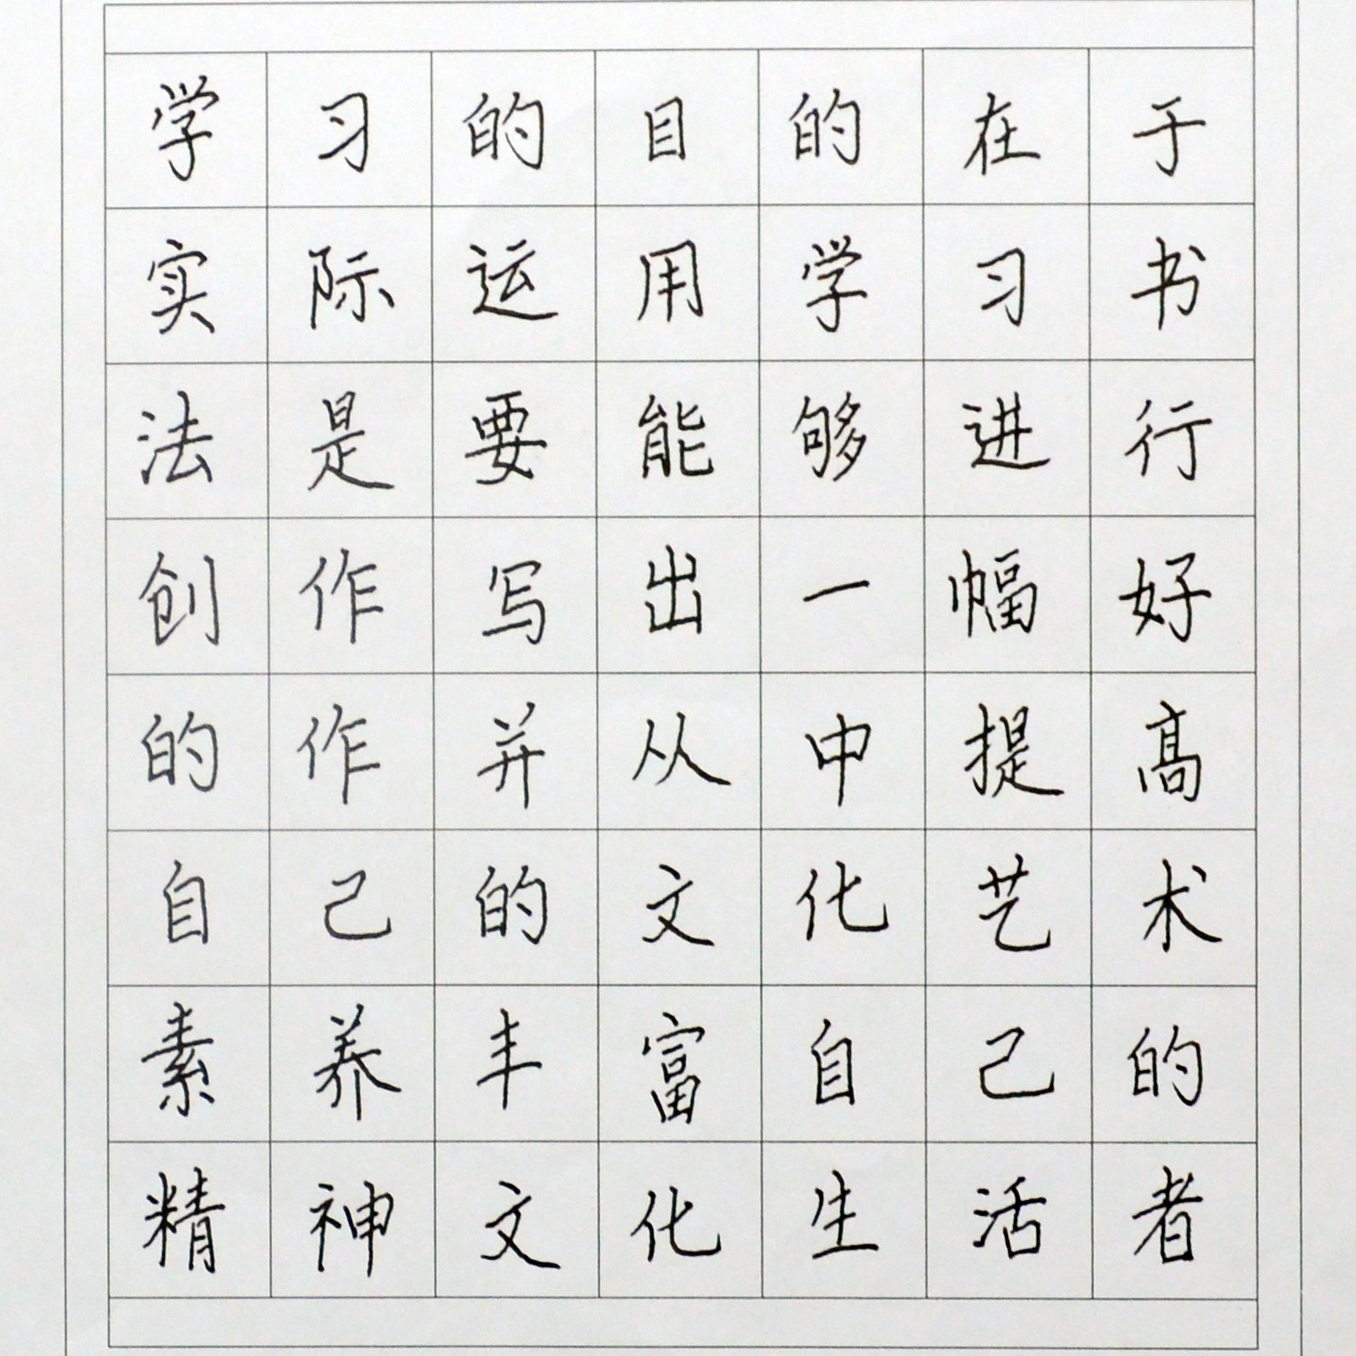 学习的目的在于
实际运用学习书
法是要能够进行
创作写出一幅好
的作并从中提高
自己的文化艺术
素养丰富自己的
精神文化生活者